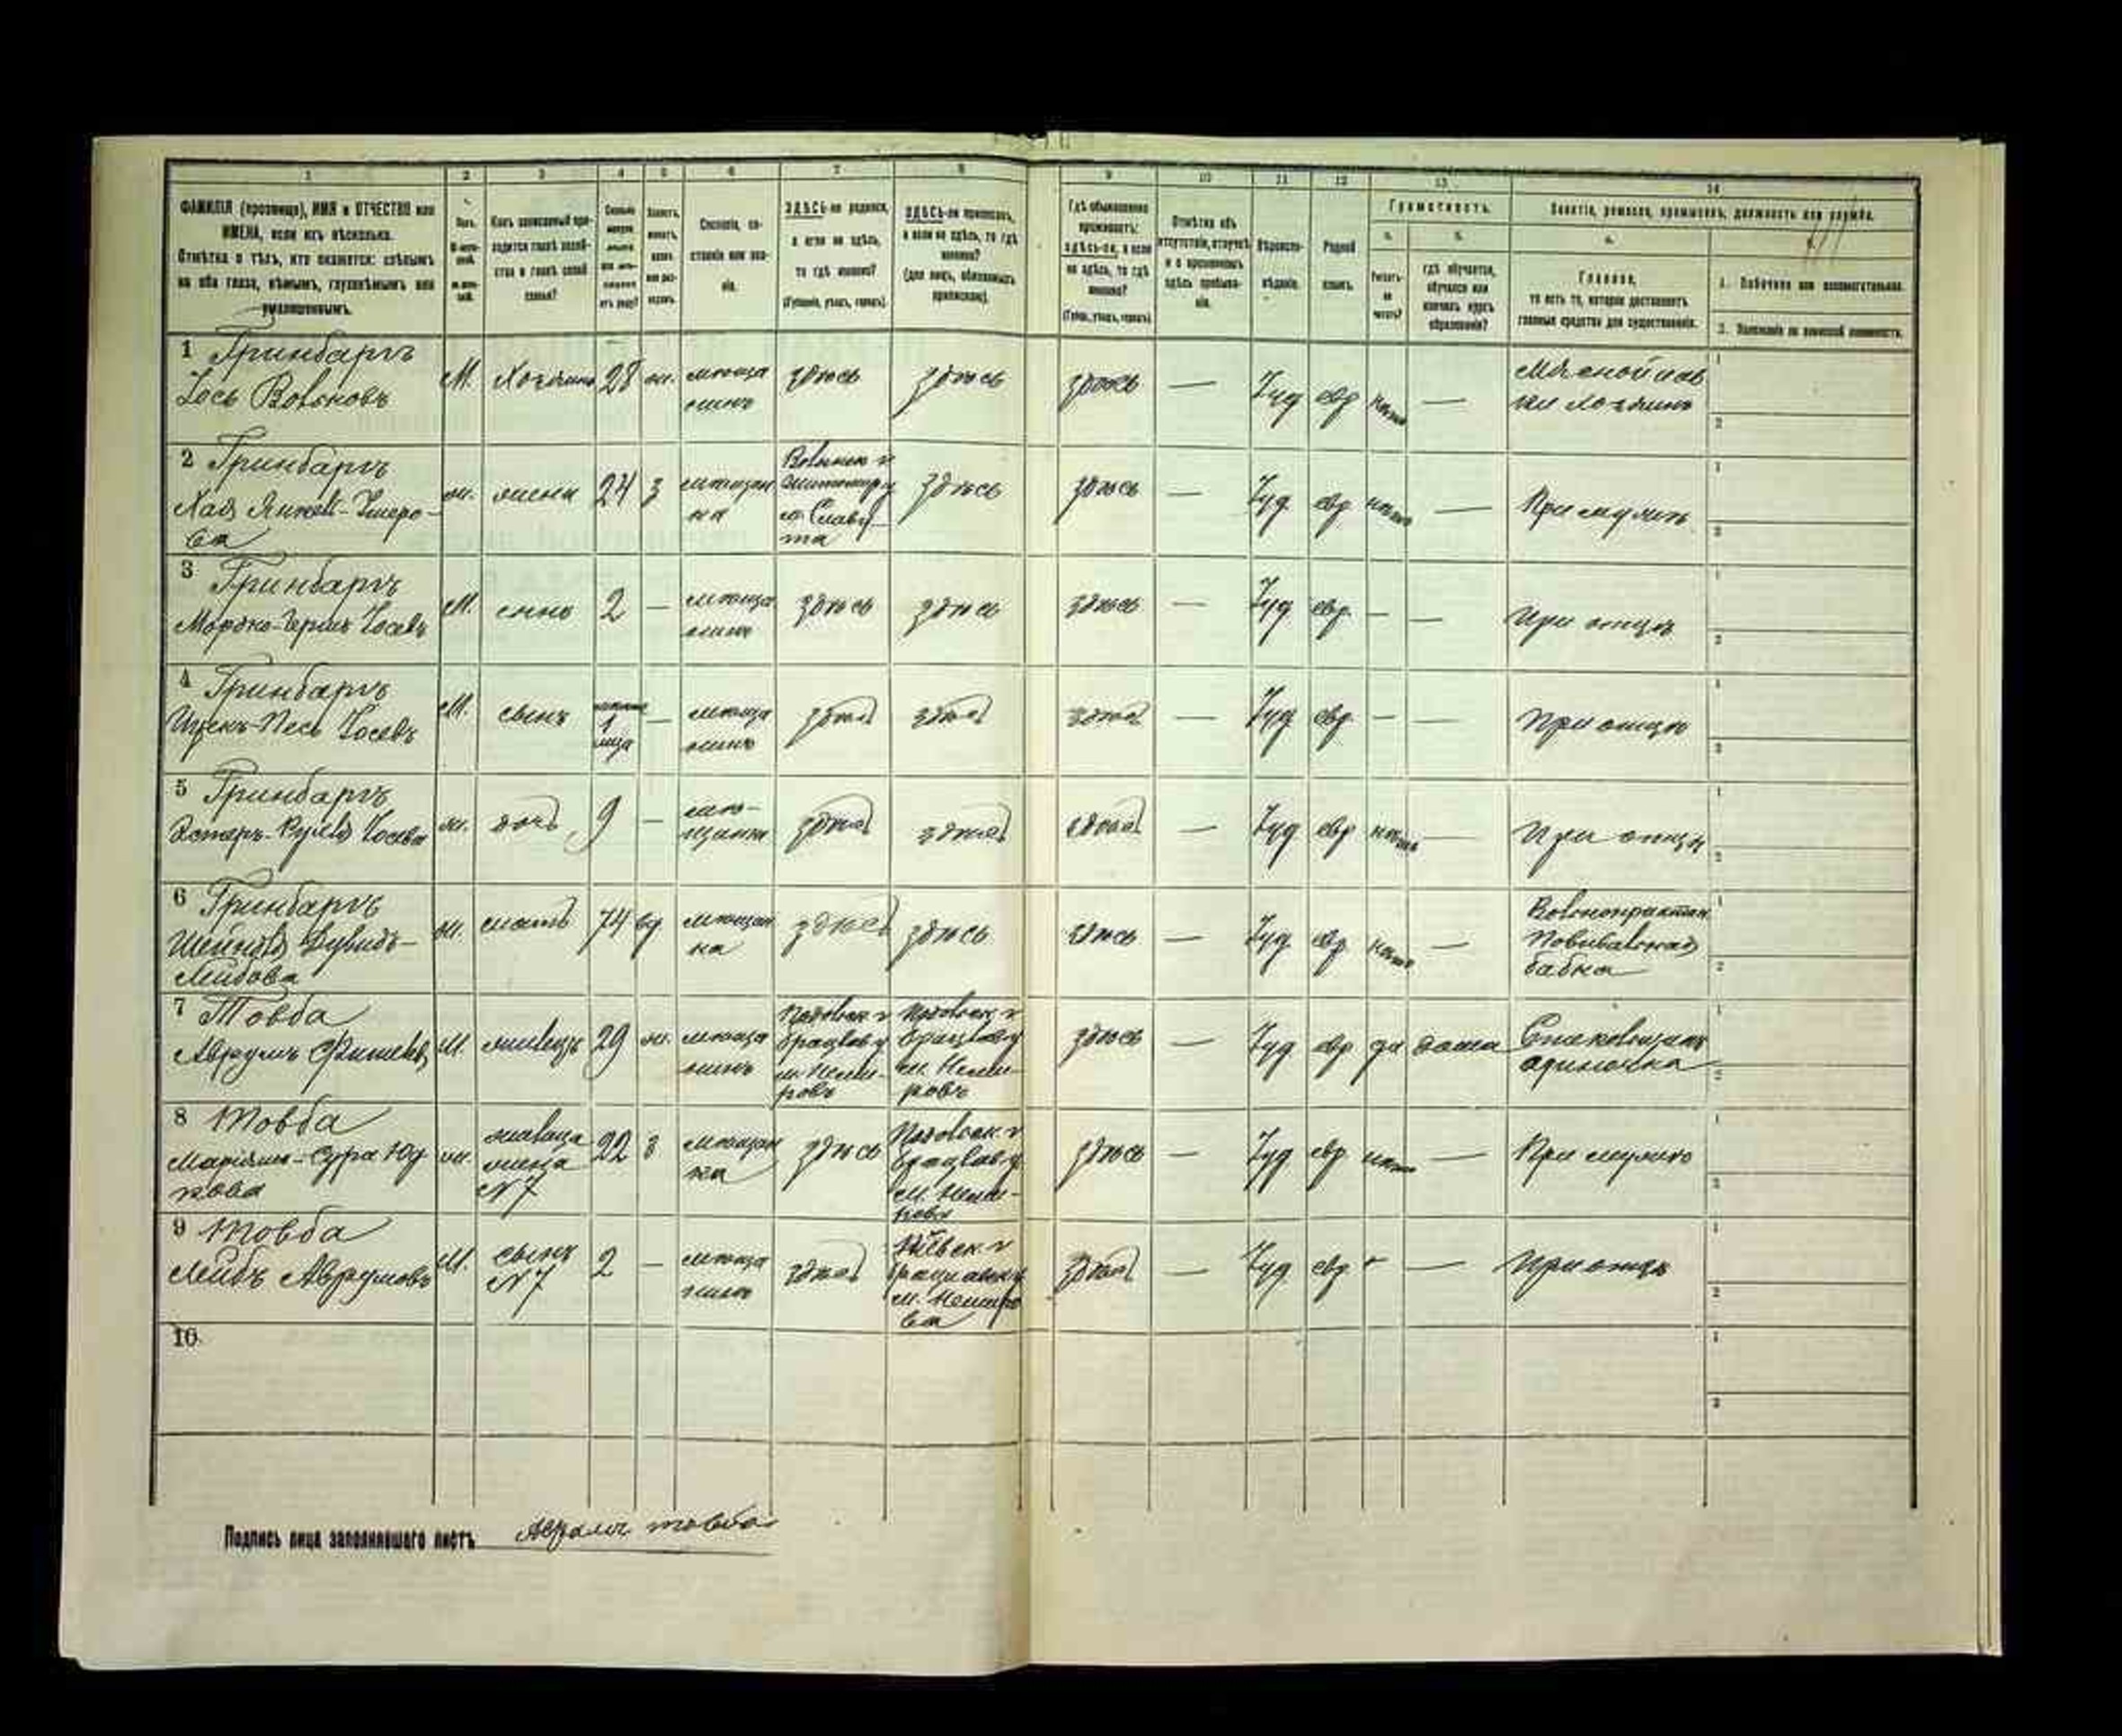 1 2 3 4 5 6 7 8 9 10 11 12 13 14
ФАМИЛІЯ (прозвище), ИМЯ и ОТЧЕСТВО или
ИМЕНА, если ихъ нѣсколько.
Отмѣтка о тѣхъ, кто окажется: слѣпымъ
на оба глаза, нѣмымъ, глухонѣмымъ или
умалишеннымъ.
Полъ.
Какъ записанный при-
ходится главѣ хозяй-
ства и главѣ своей
семьи?
Сословіе, со-
стояніе или зва-
ніе.
ЗДѢСЬ-ли родился,
а если не здѣсь,
то гдѣ именно?
(Губернія, уѣздъ, городъ).
ЗДѢСЬ-ли приписанъ,
а если не здѣсь, то гдѣ
именно?
(для лицъ, обязанныхъ
припискою).
Гдѣ обыкновенно
проживаетъ:
здѣсь-ли, а если
не здѣсь, то гдѣ
именно?
(Губ., уѣздъ, городъ).
Отмѣтка объ
отсутствіи, отлучкѣ
и о временномъ
здѣсь пребыва-
ніи.
Вѣроиспо-
вѣданіе.
Родной
языкъ.
Грамотность.
а. б.
Умѣетъ-
ли
читать?
гдѣ обучается,
обучался или
кончилъ курсъ
образованія?
Занятіе, ремесло, промыселъ, должность или служба.
а.
Главное,
то есть то, которое доставляетъ
главныя средства для существованія.
1. Побочное или вспомогательное.
2. Положеніе по воинской повинности.
1 Гринбаргъ
Іось Вольковъ
М. Хозяинъ 28 ж. мѣща
нинъ здѣсь здѣсь здѣсь — Іуд евр нѣтъ —
Мясной лав
ки хозяинъ
2 Гринбаргъ
ж. жена 24 з мѣщан
ка
м. Славу
та
здѣсь здѣсь — Іуд евр нѣтъ — При мужѣ
3 Гринбаргъ
Мордко-Гершъ Іосевъ
М. сынъ 2 — мѣща
нинъ здѣсь здѣсь здѣсь — Іуд евр. — — При отцѣ
4 Гринбаргъ
М. сынъ — мѣща
нинъ здѣсь здѣсь здѣсь — Іуд евр. — — При отцѣ
5 Гринбаргъ
Эстеръ-Рухля Іосева
ж. дочь 9 — мѣ-
щанка здѣсь здѣсь здѣсь — Іуд евр нѣтъ — При отцѣ
6 Гринбаргъ
Шейндля Дувидъ-
Лейбова
ж. мать 74 вд мѣщан
ка здѣсь здѣсь здѣсь — Іуд евр нѣтъ —
Повивальная
бабка
7 Товба
Аврумъ Фишелев
М. жилецъ 29 ж. мѣща
нинъ
Подольск г
Брацлав у
м. Неми-
ровъ
Подольск г
Брацлав у
м. Неми-
ровъ
здѣсь — Іуд евр да дома
одиночка
8 Товба
Маріямъ-Сура Юд
кова
ж. жильца
жена
N 7
22 з мѣщан
ка здѣсь
Подольск г
Брацлав у
м. Неми-
ровъ
здѣсь — Іуд евр нѣтъ — При мужѣ
9 Товба
Лейбъ Аврумовъ
М. сынъ
N 7
2 — мѣща
нинъ здѣсь
м. Немиро
ва
здѣсь — Іуд евр — При отцѣ
10.
Подпись лица заполнившаго листъ Аврамъ товба